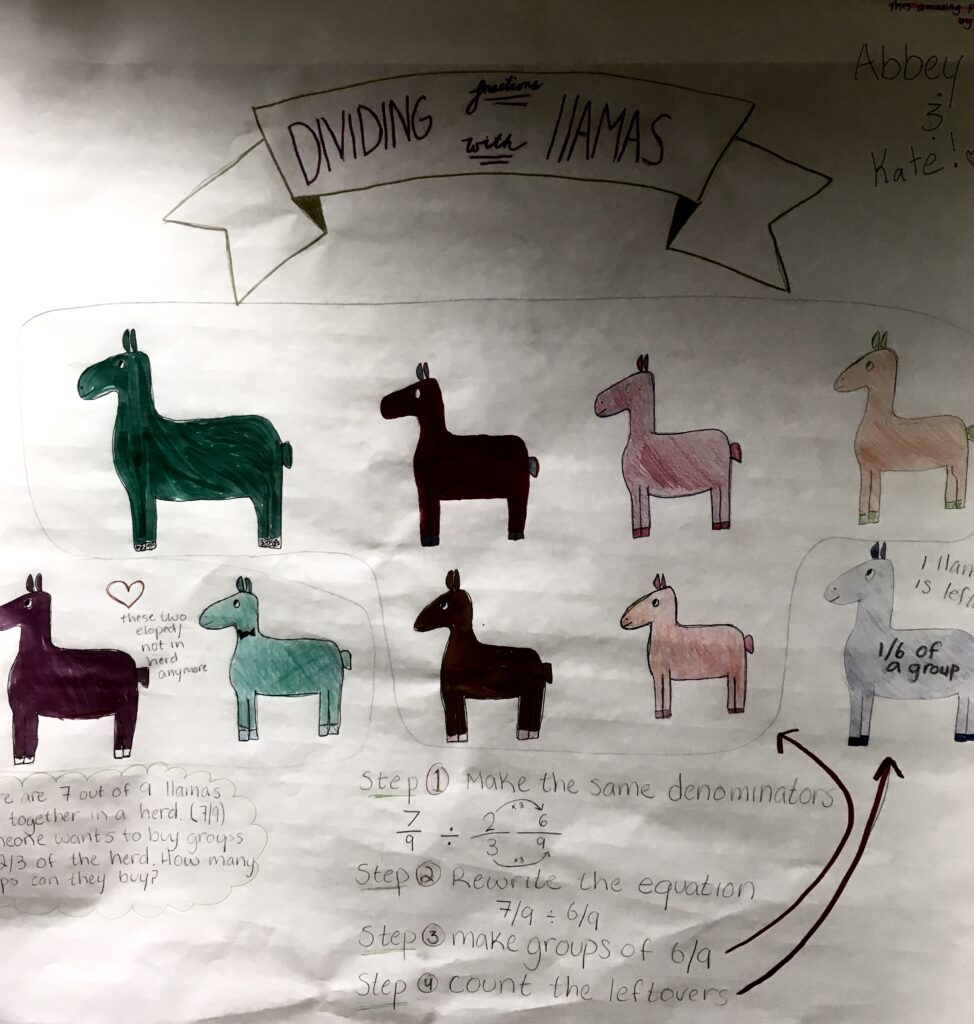 this amazing
by
Abbey
&
Kate!
DIVIDING fractions with llAMAS
these two
eloped/
not in
herd
anymore
1 llam
is left
1/6 of
a group
re are 7 out of 9 llamas
together in a herd. (7/9)
meone wants to buy groups
2/3 of the herd. How many
ps can they buy?
Step 1 Make the same denominators
7/9 ÷ 2/3 x3 x3 6/9
Step 2 Rewrite the equation
7/9 ÷ 6/9
Step 3 make groups of 6/9
Step 4 count the leftovers